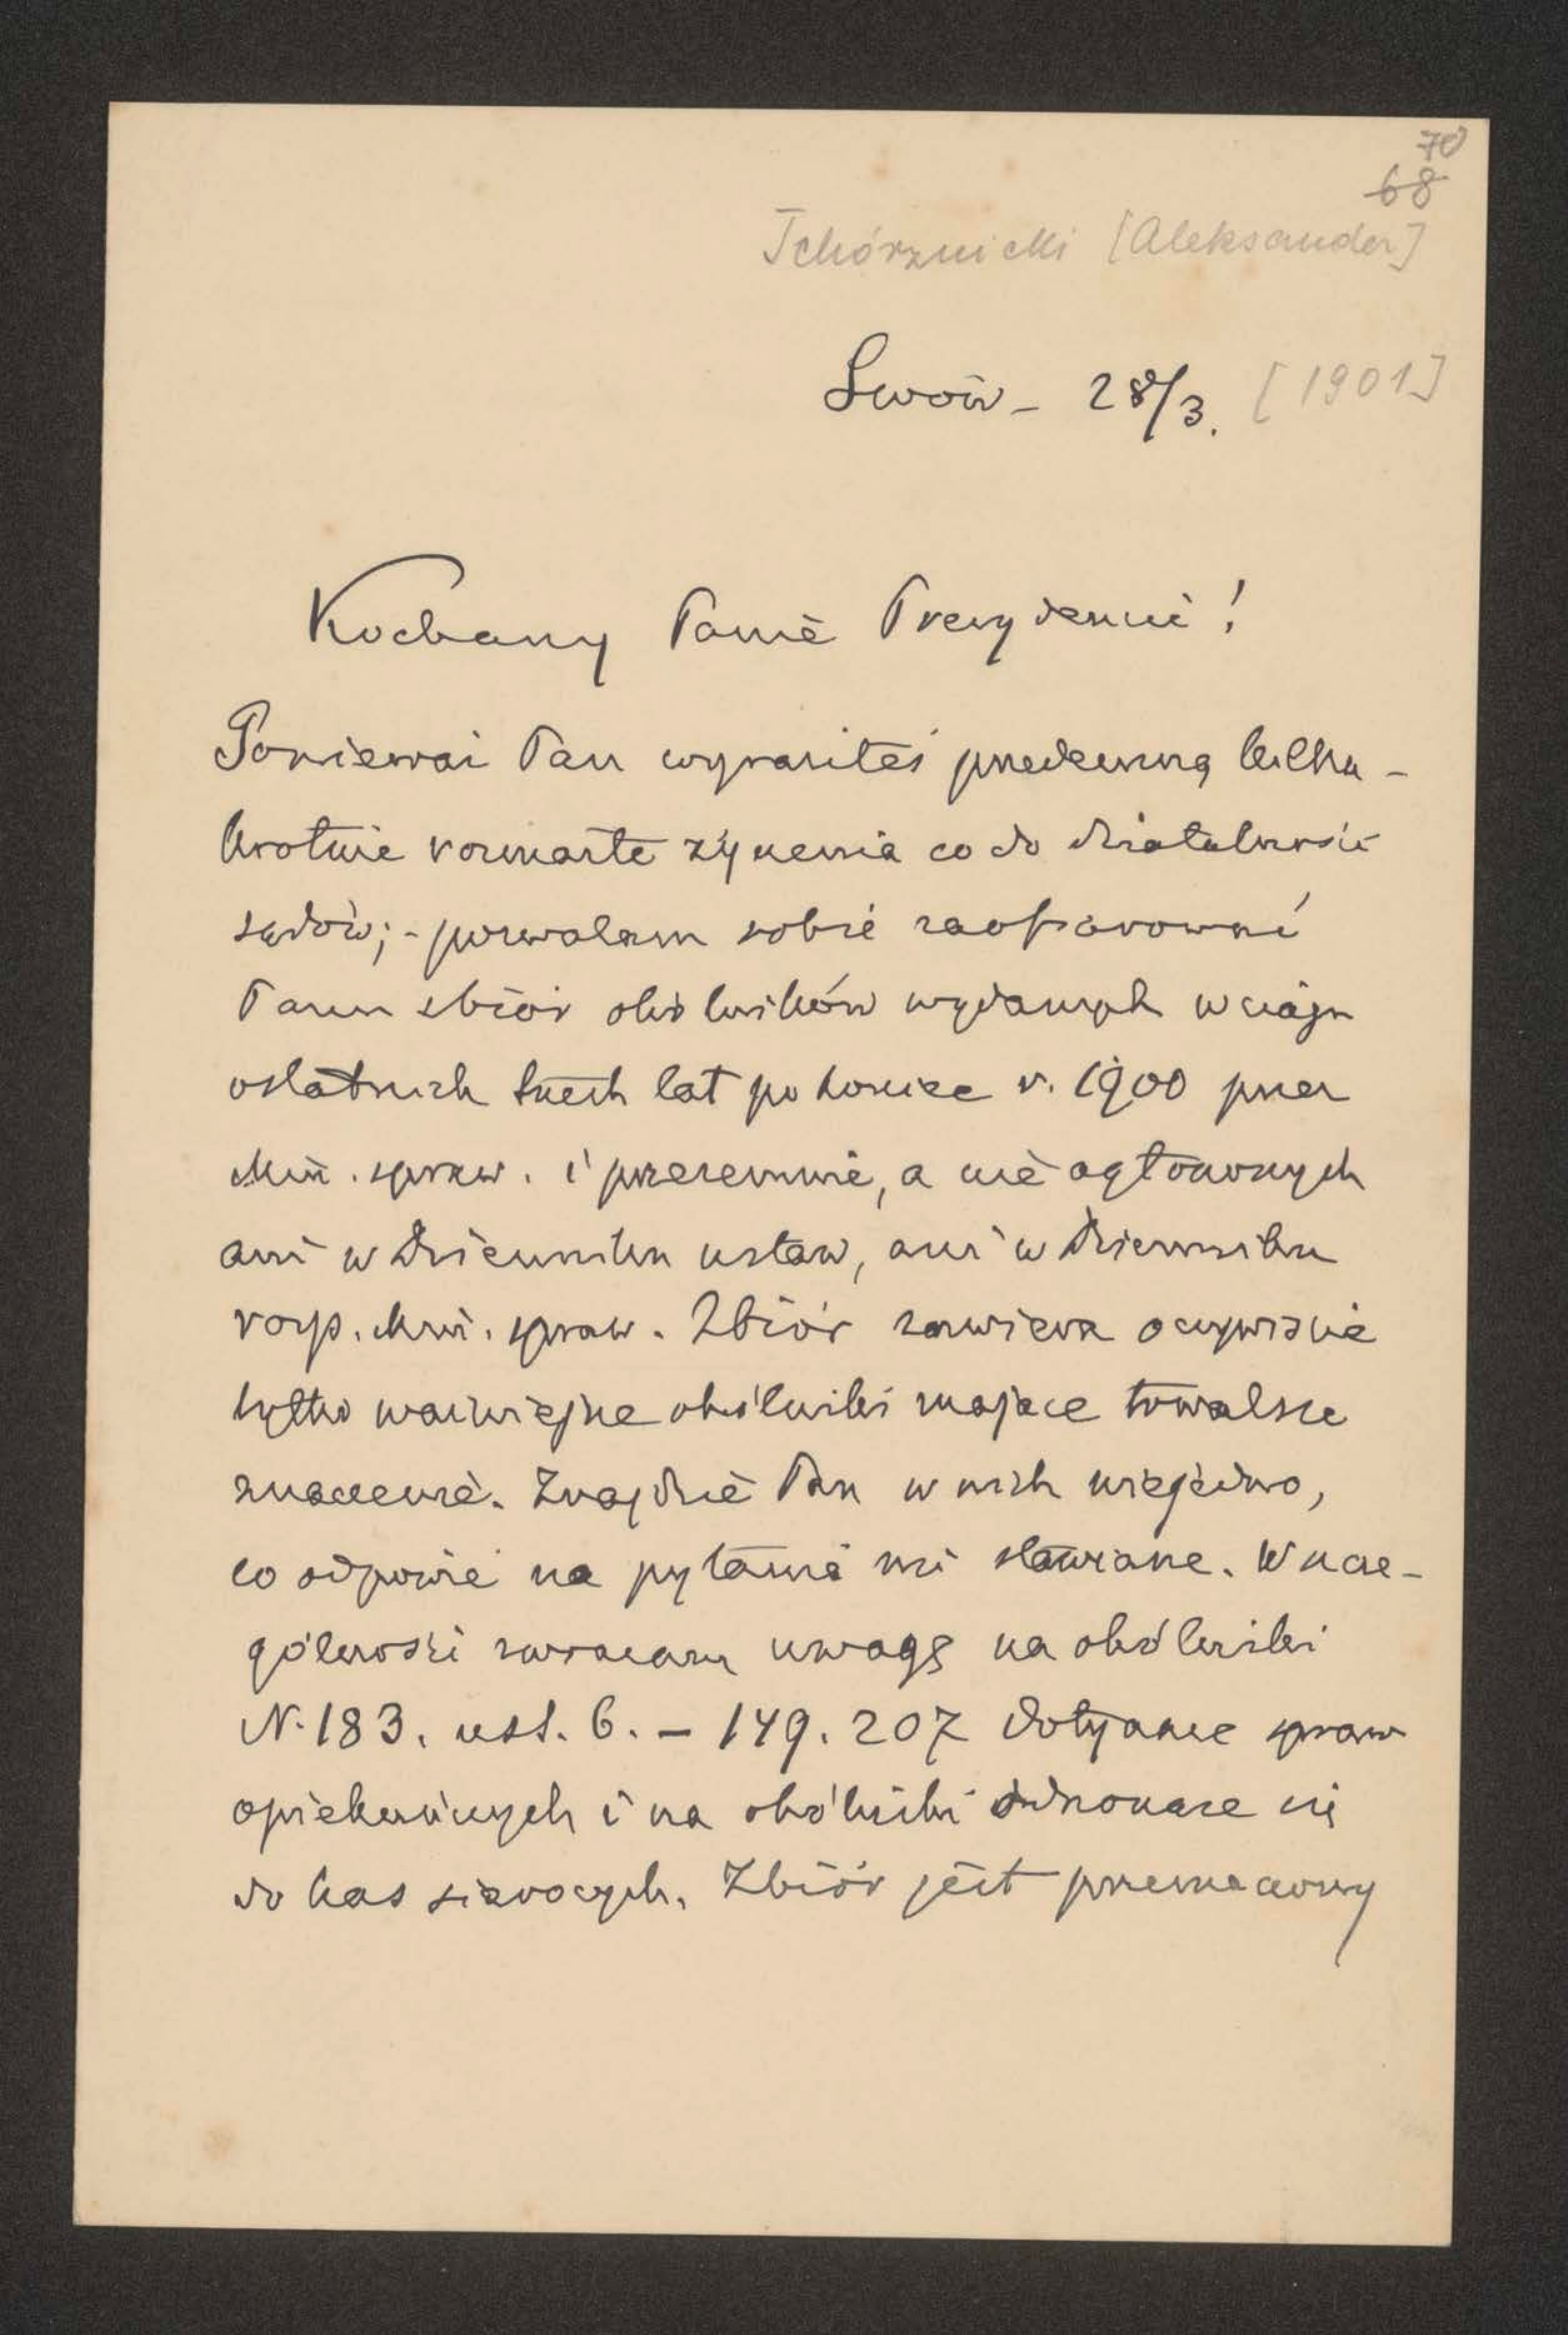 70
68
Tchórznicki [Aleksander]
Lwów - 28/3. [1901]
Kochany Panie Prezydencie!
Ponieważ Pan wyraziłeś przedemną kilka-
krotnie rozmaite życzenia co do działalności
sądów; - pozwalam sobie zaofiarować
Panu zbiór okólników wydanych w ciągu
ostatnich trzech lat po koniec r. 1900 przez
Min. spraw. i przezemnie, a nie ogłoszonych
ani w Dzienniku ustaw, ani w Dzienniku
rozp. Min. spraw. Zbiór zawiera oczywiście
tylko ważniejsze okólniki mające trwalsze
znaczenie. Znajdzie Pan w nich niejedno,
co odpowie na pytania mi stawiane. W szcze-
gólności zwracam uwagę na okólniki
N. 183. ust. 6. - 149. 207 dotyczące spraw
opiekuńczych i na okólniki odnoszące się
do kas sierocych. Zbiór jest przeznaczony